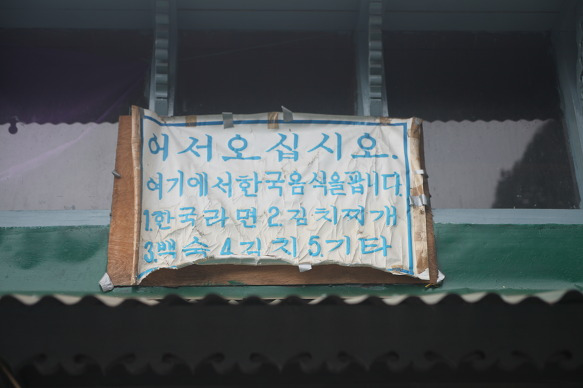 어서오십시오.
여기에서한국음식을팝니다
1.한국라면2.김치찌개
3.백숙4.김치5.기타